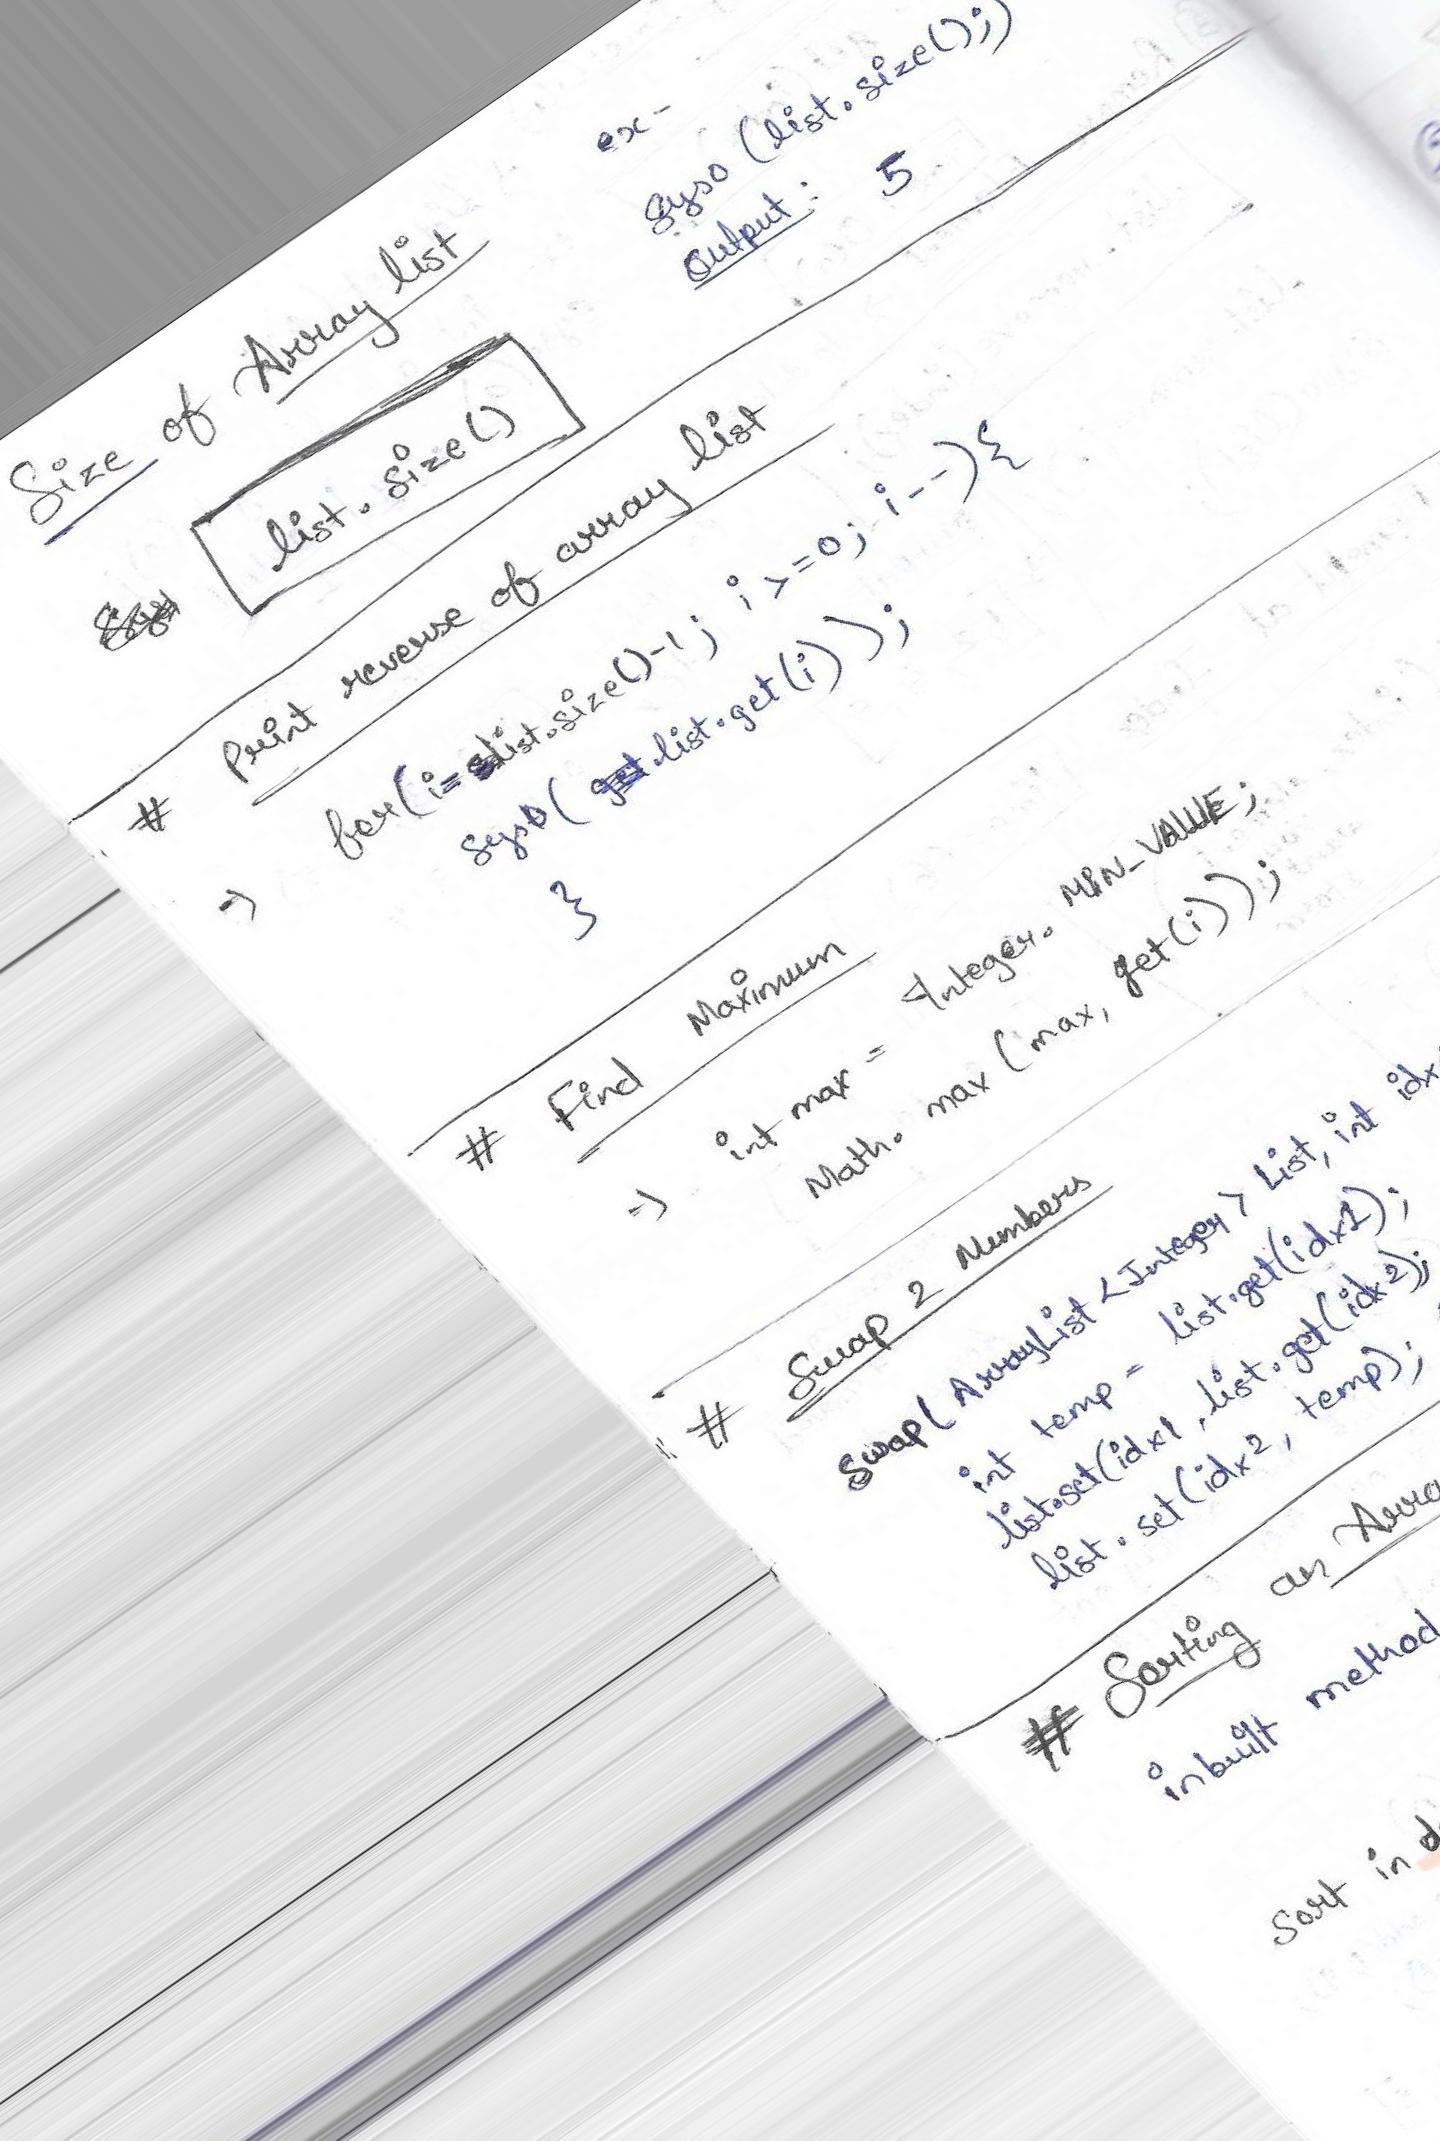 Size of Array list
list.size()
ex-
syso (list.size();)
Output: 5
# Print reverse of array list
→ for(i=list.size()-1; i>=0; i--){
syso( list.get(i));
}
# Find Maximum
→ int max = Integer.MIN_VALUE;
Math.max (max, get(i));
# Swap 2 Numbers
swap(ArrayList <Integer> list, int idx
int temp = list.get(idx1);
list.set(idx1, list.get(idx2);
list.set(idx2, temp);
# Sorting an Arra
inbuilt method
Sort in d